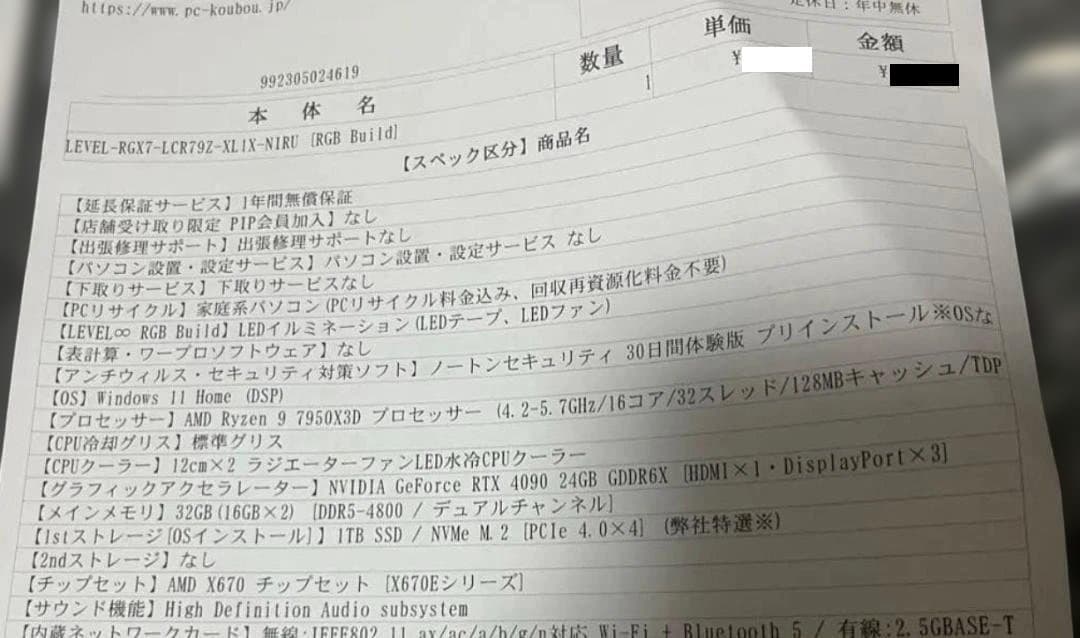 https://www.pc-koubou.jp/
定休日：年中無休
992305024619
数量
単価
金額
1
¥
¥
本 体 名
LEVEL-RGX7-LCR79Z-XL1X-NIRU [RGB Build]
【スペック区分】商品名
【延長保証サービス】1年間無償保証
【店舗受け取り限定 PIP会員加入】なし
【出張修理サポート】出張修理サポートなし
【パソコン設置・設定サービス】パソコン設置・設定サービス なし
【下取りサービス】下取りサービスなし
【PCリサイクル】家庭系パソコン(PCリサイクル料金込み、回収再資源化料金不要)
【LEVEL∞ RGB Build】LEDイルミネーション(LEDテープ、LEDファン)
【表計算・ワープロソフトウェア】なし
【アンチウィルス・セキュリティ対策ソフト】ノートンセキュリティ 30日間体験版 プリインストール※OSな
【OS】Windows 11 Home (DSP)
【プロセッサー】AMD Ryzen 9 7950X3D プロセッサー (4.2-5.7GHz/16コア/32スレッド/128MBキャッシュ/TDP
【CPU冷却グリス】標準グリス
【CPUクーラー】12cm×2 ラジエーターファンLED水冷CPUクーラー
【グラフィックアクセラレーター】NVIDIA GeForce RTX 4090 24GB GDDR6X [HDMI×1・DisplayPort×3]
【メインメモリ】32GB(16GB×2) [DDR5-4800 / デュアルチャンネル]
【1stストレージ[OSインストール]】1TB SSD / NVMe M.2 [PCIe 4.0×4] (弊社特選※)
【2ndストレージ】なし
【チップセット】AMD X670 チップセット [X670Eシリーズ]
【サウンド機能】High Definition Audio subsystem
【内蔵ネットワークカード】無線:IEEE802.11 ax/ac/a/b/g/n対応 Wi-Fi + Bluetooth 5 / 有線:2.5GBASE-T